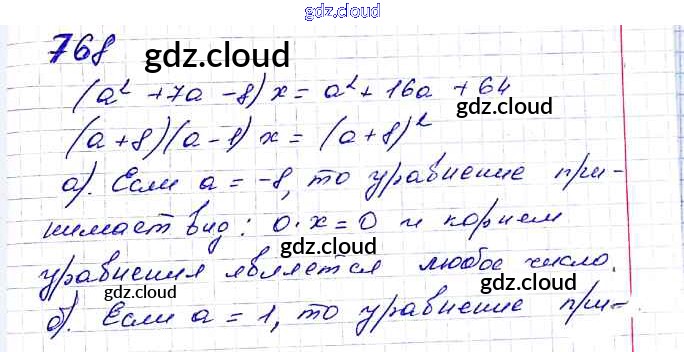 gdz.cloud
768
gdz.cloud
(a² + 7a - 8)x = a² + 16a + 64
gdz.cloud
(a+8)(a-1)x = (a+8)²
gdz.cloud
а). Если a = -8, то уравнение при-
нимает вид: 0·x=0 и корнем
gdz.cloud
уравнения является любое число.
gdz.cloud
gdz.cloud
б). Если a = 1, то уравнение при=